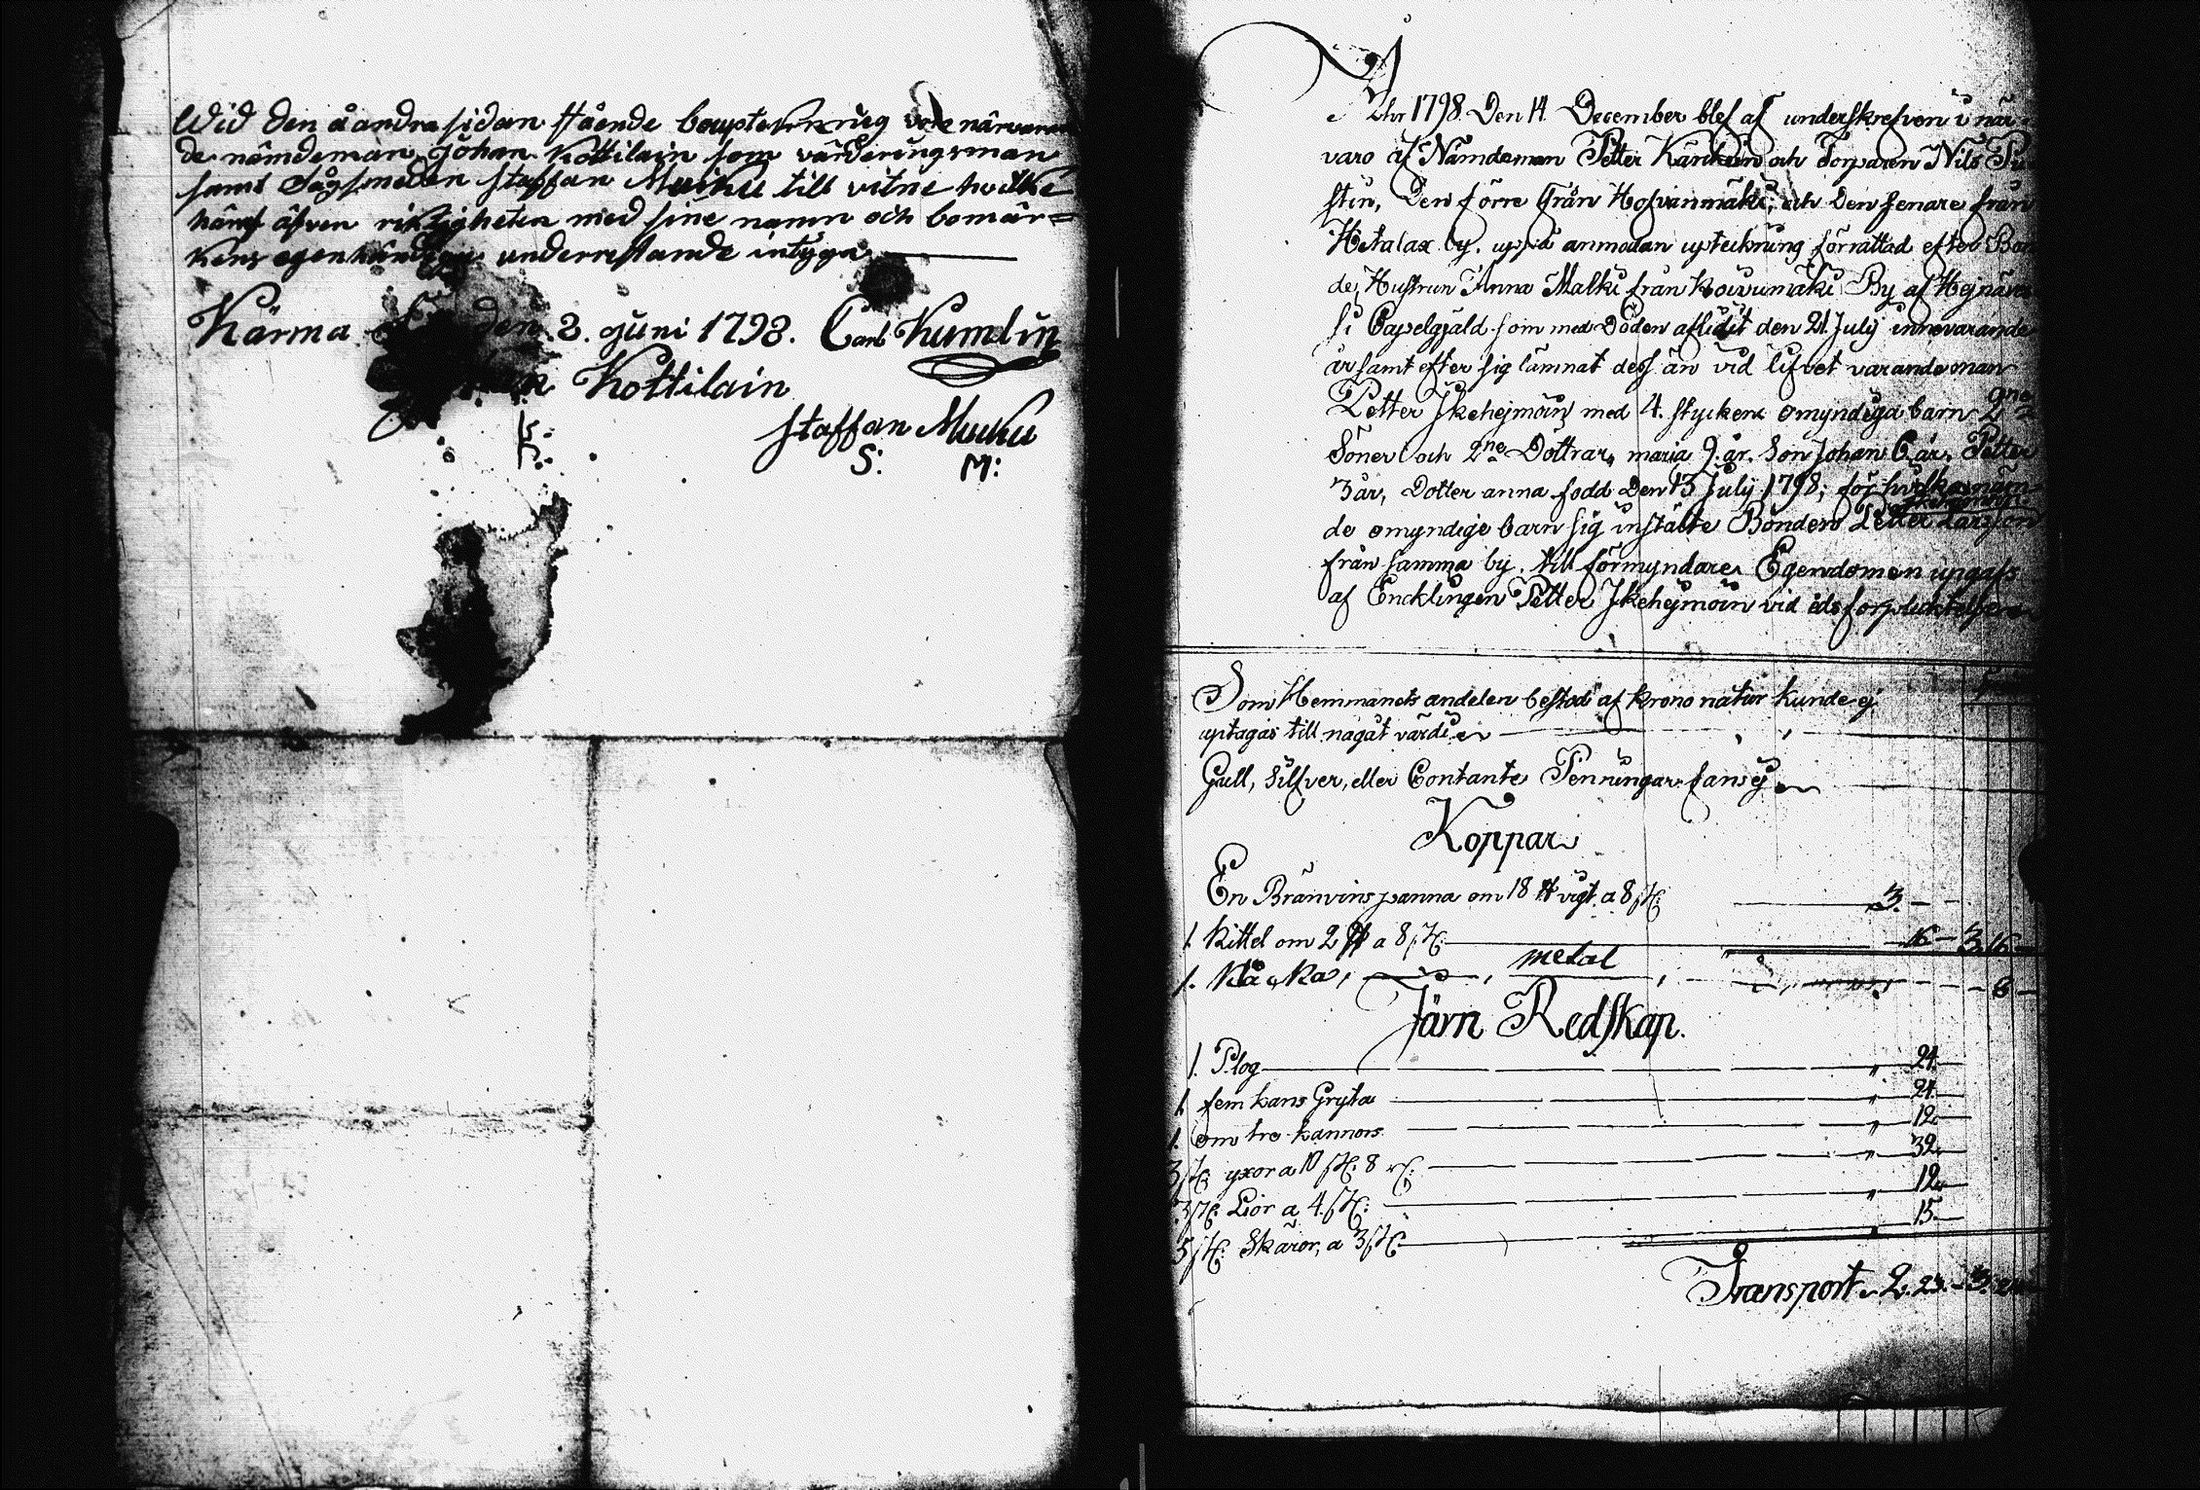 Wid den å andra sidan stående boupteckning vore närvaran
de nämdeman Johan Kottilain som värderingsman
samt Sågsmeden Staffan Mucku till vitne hvilke
härj äfven riktigheten med sine namn och bomär=
kens egenhändiga underrestande intyga
Kärma den 8. Juni 1798. Carl Kumlin
Kottilain
K:
Staffan Mucku
S: M:
Åhr 1798 Den 14 December blef af underskrefven i när
varo af Nämdeman Petter Kärikein och Torparen Nils
stin, Den förre från Hofvinmäki, och Den senare från
Hetalax by, uppå anmodan upteckning förrättad efter Bon
de, Hustrun Anna Malki från Koivumäki By af Hejnäve
si Capelgjäld som med Döden aflidit den 21 July innevarande
år samt efter sig lämnat dess än vid lifvet varande man
Petter Ikehejmoin med 4. stycken omyndiga barn 2ne
Söner och 2ne Döttrar, maria 9. år. Son Johan 6 år, Petter
3 år, Dotter anna född Den 13 July 1798; för hvilka
de omyndige barn sig instälte Bonden Petter Larsson
från samma by, till förmyndare. Egendomen upgafs
af Encklingen Petter Ikehejmoin vid eds förplicktelse
Som Hemmanets andelen bestod af krono natur kunde ej
uptagas till något värde
Gull, Silfver, eller Contante Penningar fans ej
Koppar
En Bränvins panna om 18 ℔ vigt a 8 sk: 3. –
1. Kittel om 2 ℔ a 8 sk: 16 – 3.16 –
1. Klåcka, metal – 8 –
Järn Redskap.
1. Plog 24.
1. fem kans Gryta 24.
1. om tre kannors 12.
3 st: yxor a 10 sk: 8 r: 32.
3 st: Lior a 4. sk: 12.
5 st: Skäror, a 3 sk: 15.
Transport 2. 23. – 3. 24